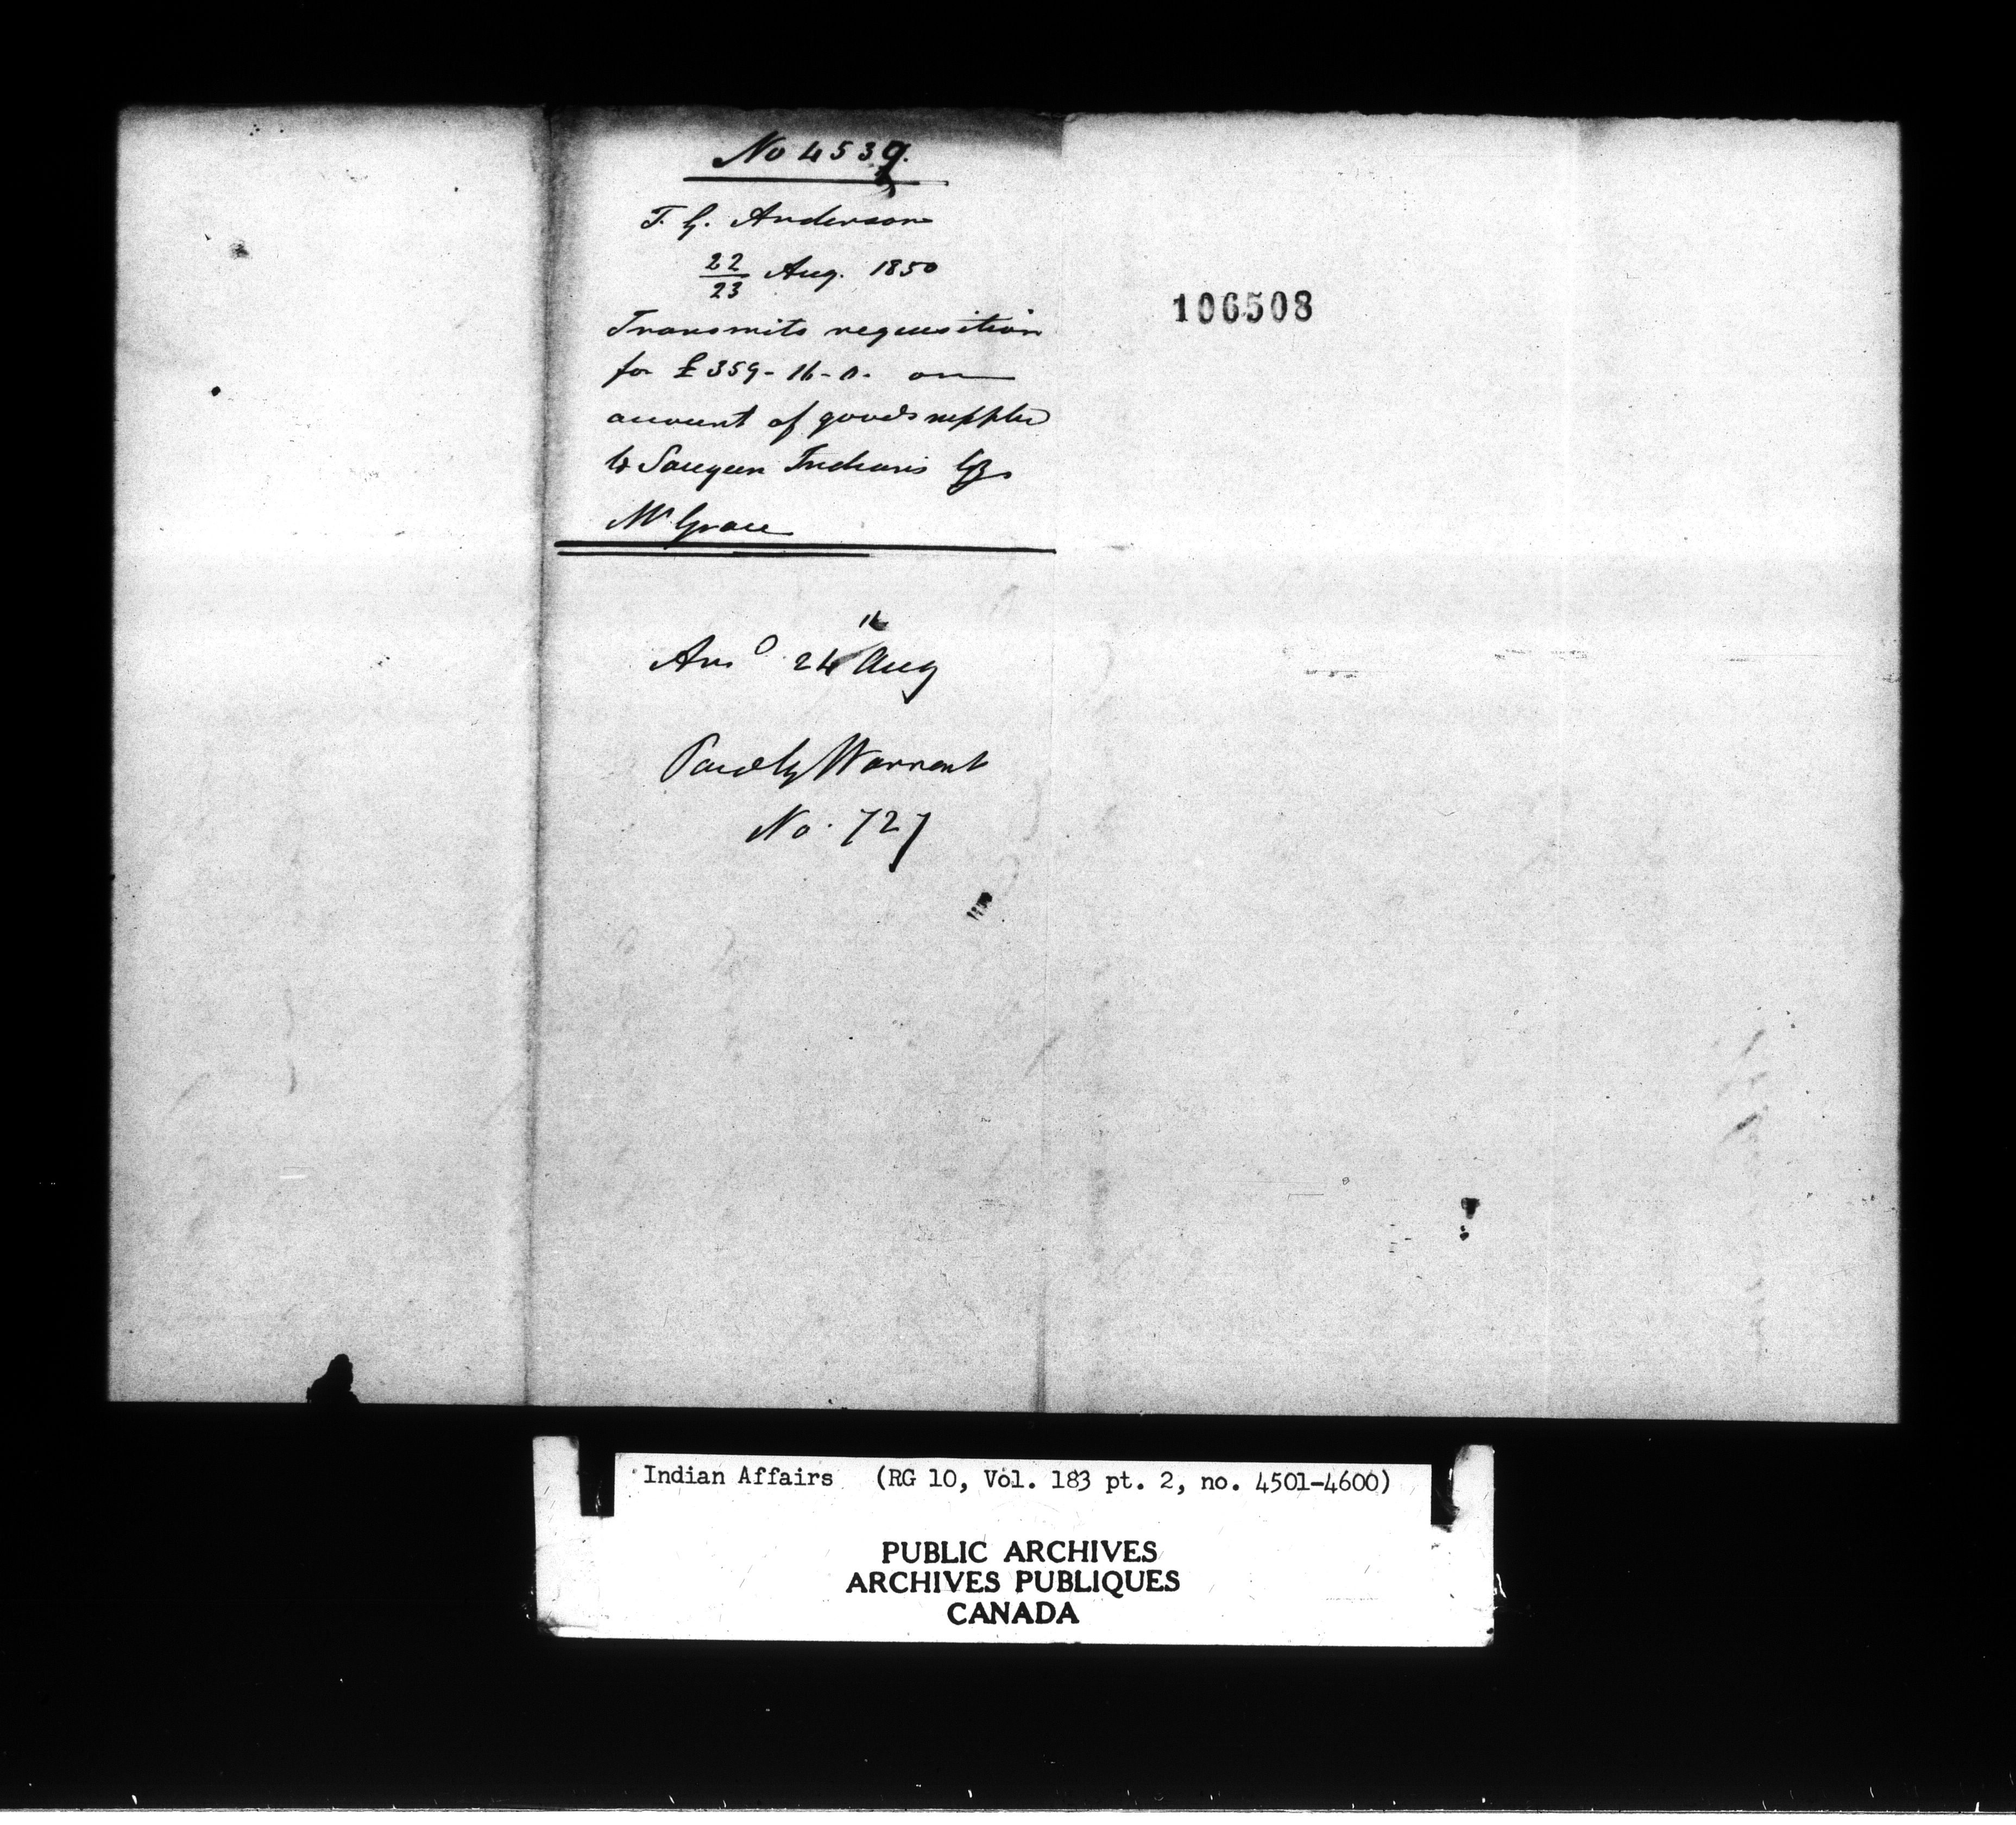 No 4539.
T. G. Anderson
22/23 Aug. 1850
Transmits requisition
for £359-16-0. on
account of goods supplied
to Saugeen Indians by
Mr Grace
106508
Ansd 24th Aug
Paid by Warrant
No. 727
Indian Affairs (RG 10, Vol. 183 pt. 2, no. 4501-4600)
PUBLIC ARCHIVES
ARCHIVES PUBLIQUES
CANADA